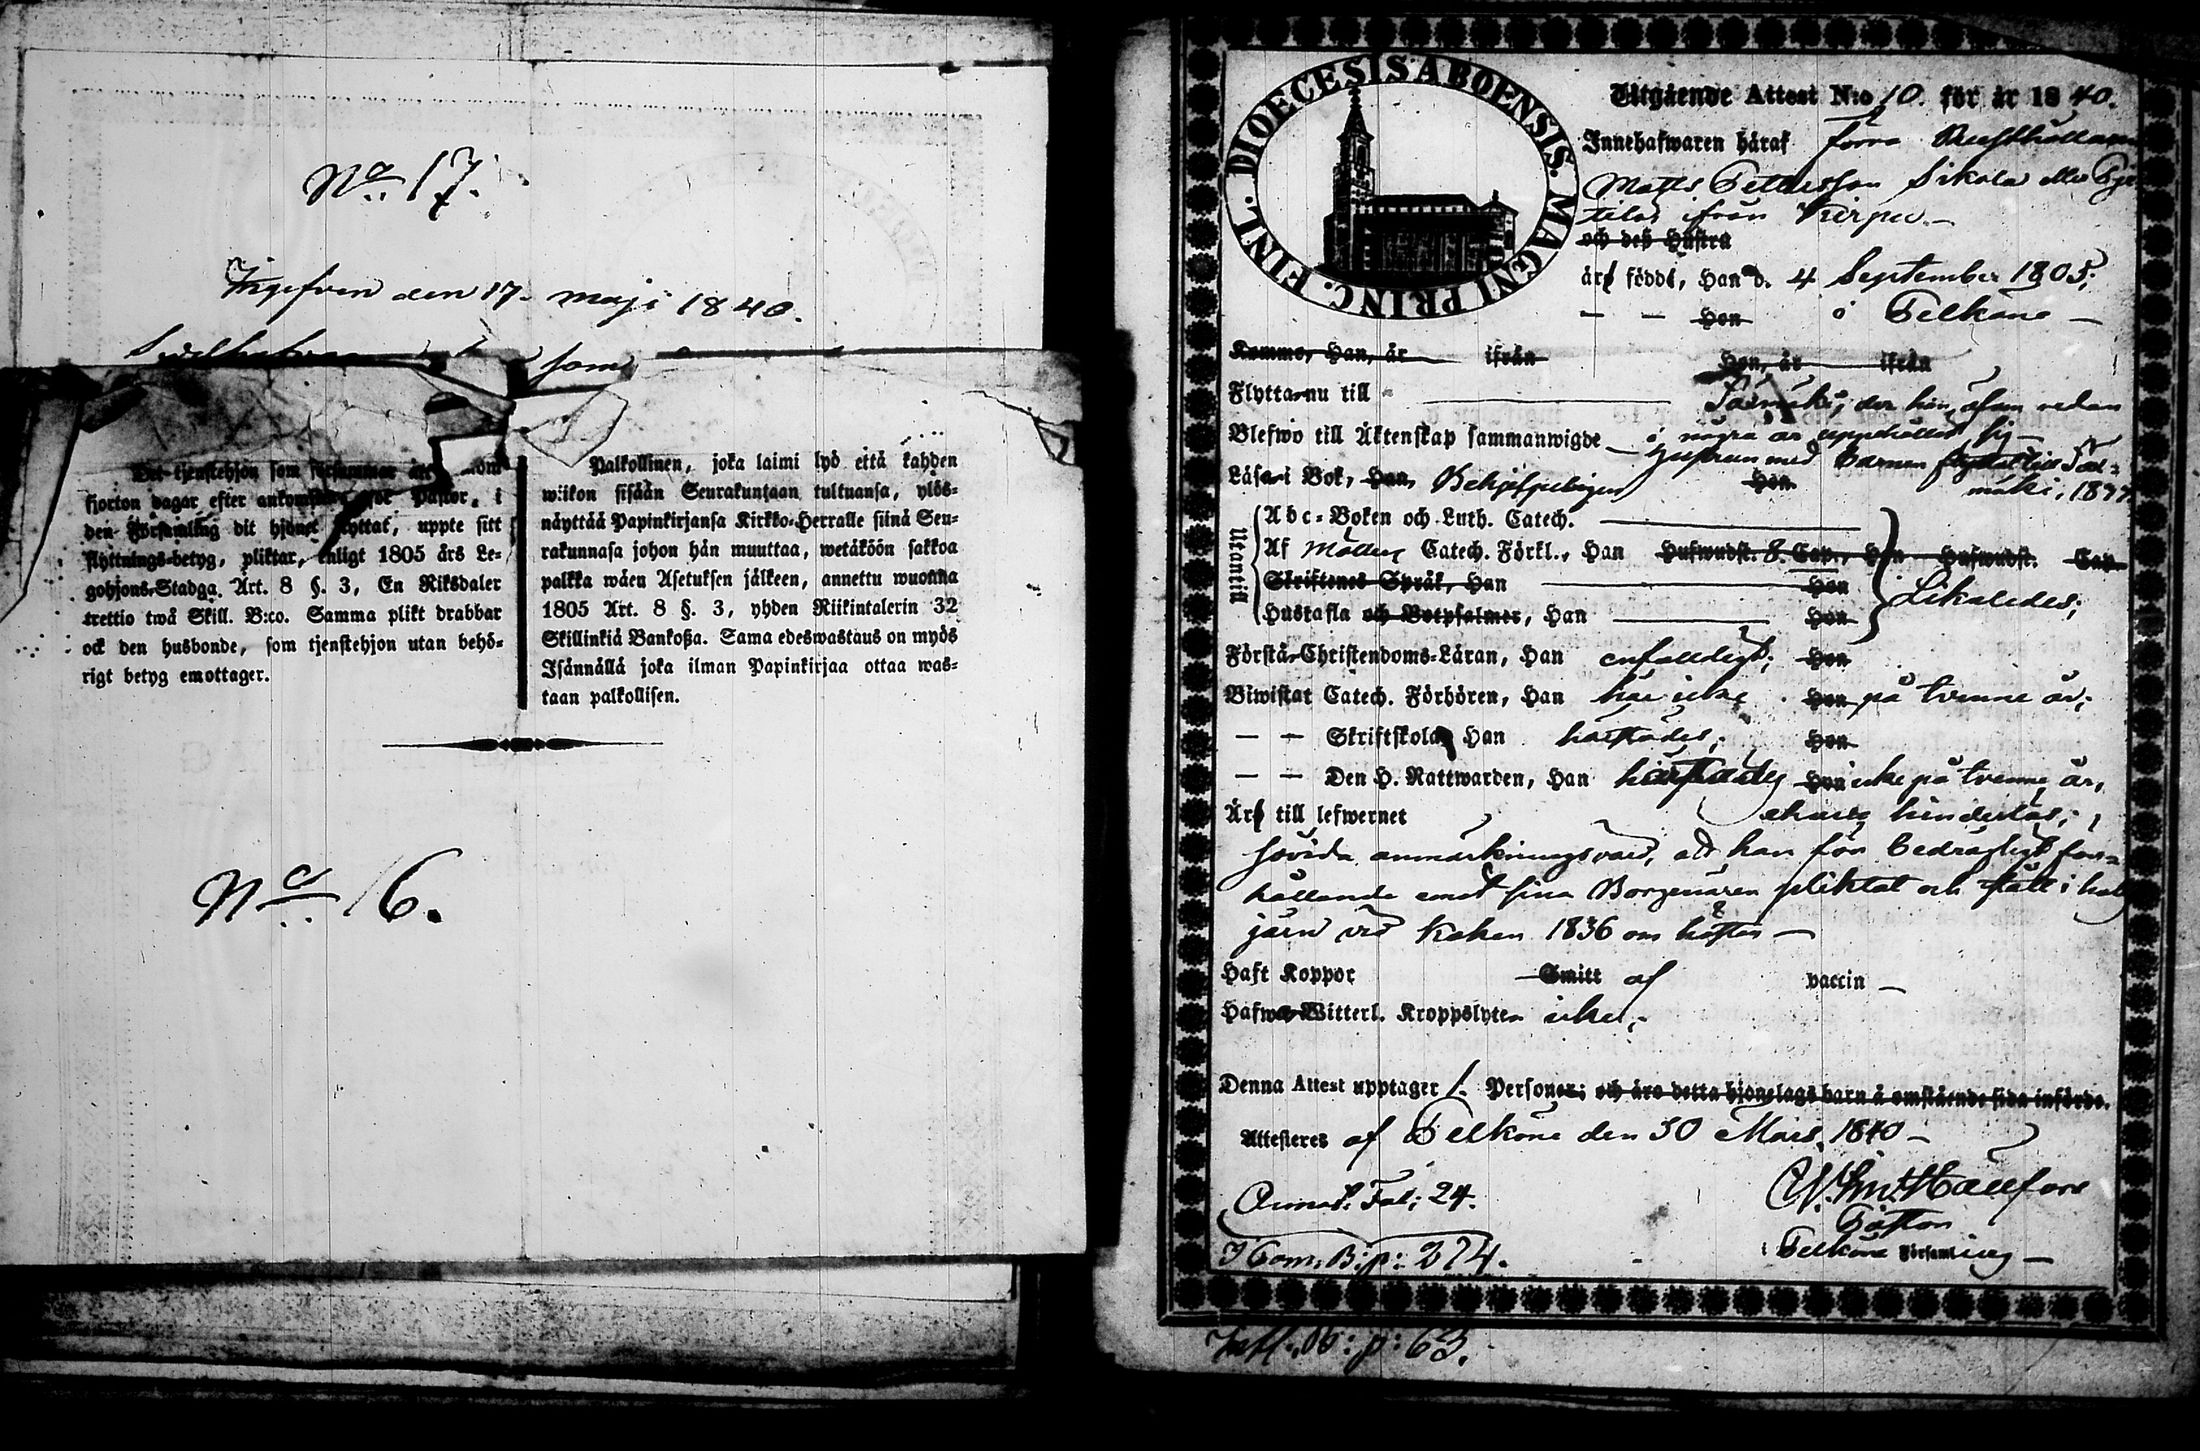 No 17.
Ingifven den 17. maji 1840.
som
Det tjenstehjon som försummar att inom
fjorton dagar efter ankomsten för Pastor, i
den Församling dit hjonet flyttat, uppte sitt
flyttnings-betyg, pliktar, enligt 1805 års Le-
gohjons-Stadga. Art. 8 §. 3, En Riksdaler
trettio twå Skill. B:co. Samma plikt drabbar
ock den husbonde, som tjenstehjon utan behö-
rigt betyg emottager.
Palkollinen, joka laimi lyö että kahden
wiikon sisään Seurakuntaan tultuansa, ylös-
näyttää Papinkirjansa Kirkko-Herralle siinä Seu-
rakunnasa johon hän muuttaa, wetäköön sakkoa
palkka wäen Asetuksen jälkeen, annettu wuonna
1805 Art. 8 §. 3, yhden Riikintalerin 32
Skillinkiä Bankoßa. Sama edeswastaus on myös
Isännällä joka ilman Papinkirjaa ottaa was-
taan palkollisen.
No 16.
DIOECESIS ABOENSIS. MAGNI PRINC. FINL.
Utgående Attest N:o 10. för år 1840.
Innehafwaren häraf förra Rusthållaren
Matts Pettersson Sikala eller
tila ifrån
och deß Hustru
äro födde, Han d. 4 September 1805,
— — Hon i Pelkäne —
Kommo, Han, är ifrån Hon, är ifrån
Flytta nu till Säxmäki, der han äfven redan
Blefwo till Äktenskap sammanwigde i några år uppehållit sig
hustrun med barnen flyttat till Säx-
Läsa i Bok, Han, Behjelpeligen Hon mäki, 1837
Utantill
Abc-Boken och Luth. Catech.
Af Möllers Catech. Förkl., Han Hufwudst. 8. Cap., Hon Hufwudst. Cap.
Skriftenes Språk, Han Hon Likaledes;
Hustafla och Botpsalmer, Han Hon
Förstå Christendoms-Läran, Han enfaldigt; Hon
Biwistat Catech. Förhören, Han här icke Hon på tvenne år;
— — Skriftskola, Han härstädes; Hon
— — Den H. Nattwarden, Han härstädes Hon icke på tvenne år,
Äro till lefwernet hinderlös;
såvida anmärkningsvärd, att han för bedrägligt för-
hållande emot sina Borgenärer pliktat och stått i hals
järn vid Kåken 1836 om hösten —
Haft Koppor Smitt af vaccin —
Hafwa Witterl. Kroppslyten icke;
Denna Attest upptager 1. Personer; och äro detta hjonelags barn å omstående sida införde.
Attesteres af Pelkäne den 30 Mars, 1840 —
Annot: Fol: 24.
Pastor
i Pelkäne Församling —
Com: B: p: 274.
Infl. B: p: 63.